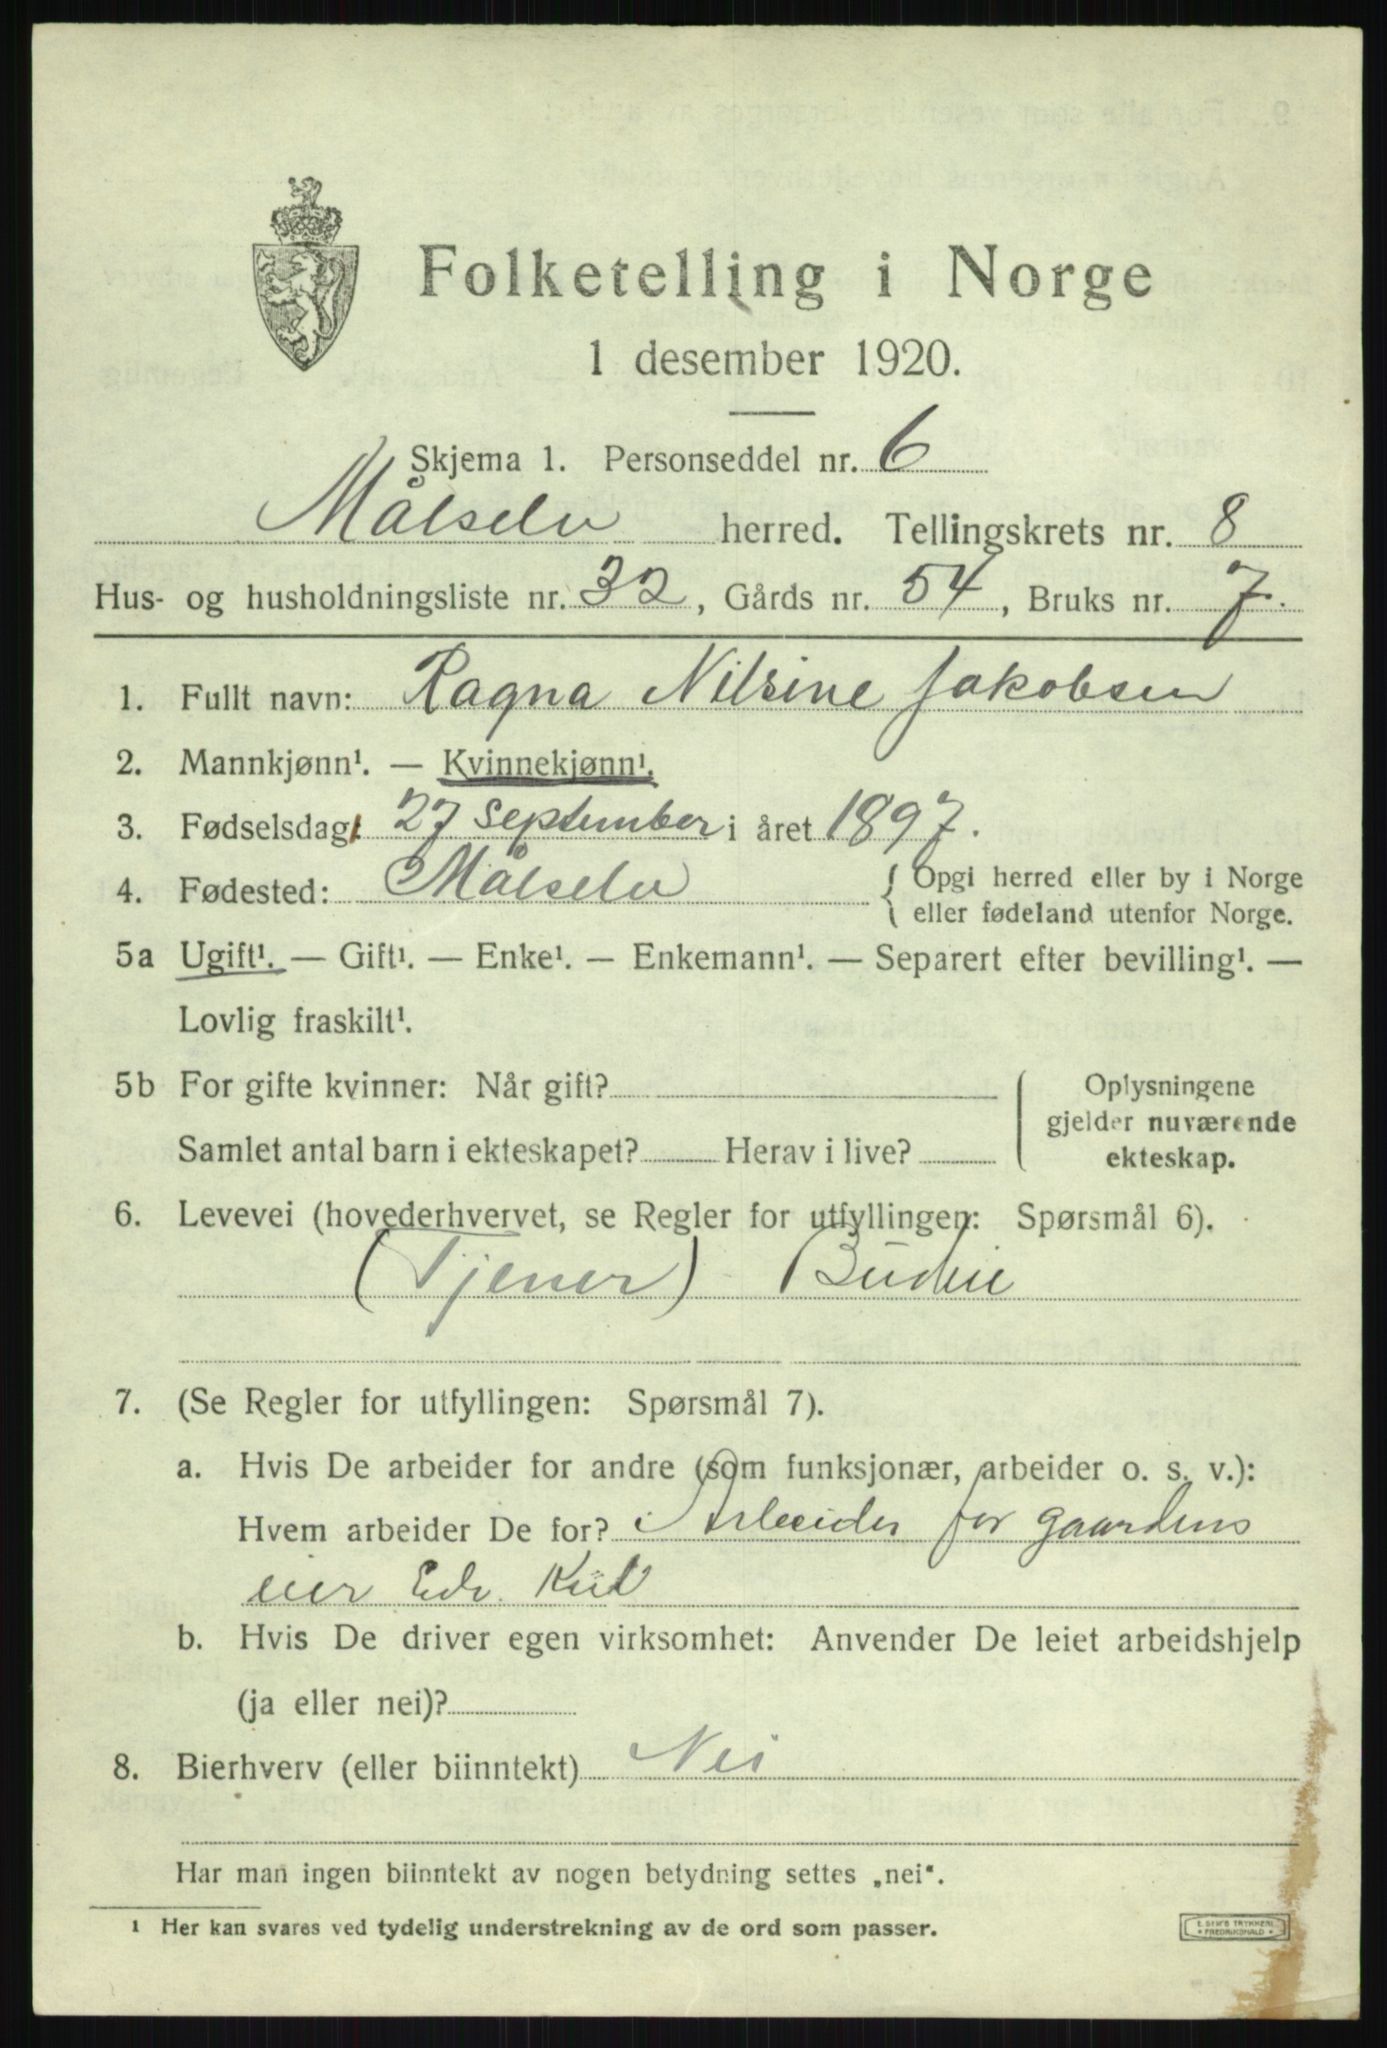 Folketelling i Norge
1 desember 1920.
Skjema 1. Personseddel nr. 6
Målselv herred. Tellingskrets nr. 8
Hus- og husholdningsliste nr. 32, Gårds nr. 54, Bruks nr. 7.
1. Fullt navn: Ragna Nilsine Jakobsen
2. Mannkjønn¹. — Kvinnekjønn¹.
3. Fødselsdag: 27 september i året 1897.
4. Fødested: Målselv { Opgi herred eller by i Norge
eller fødeland utenfor Norge.
5a Ugift¹. — Gift¹. — Enke¹. — Enkemann¹. — Separert efter bevilling¹. —
Lovlig fraskilt¹.
5b For gifte kvinner: Når gift? Oplysningene
gjelder nuværende
Samlet antal barn i ekteskapet? Herav i live? ekteskap.
6. Levevei (hovederhvervet, se Regler for utfyllingen: Spørsmål 6).
(Tjener) Budeie
7. (Se Regler for utfyllingen: Spørsmål 7).
a. Hvis De arbeider for andre (som funksjonær, arbeider o. s. v.):
Hvem arbeider De for? Arbeider for gaardens
eier Edv.
b. Hvis De driver egen virksomhet: Anvender De leiet arbeidshjelp
(ja eller nei)?
8. Bierhverv (eller biinntekt) Nei
Har man ingen biinntekt av nogen betydning settes „nei“.
1 Her kan svares ved tydelig understrekning av de ord som passer.
E. SEM'S TRYKKERI
FREDRIKSHALD